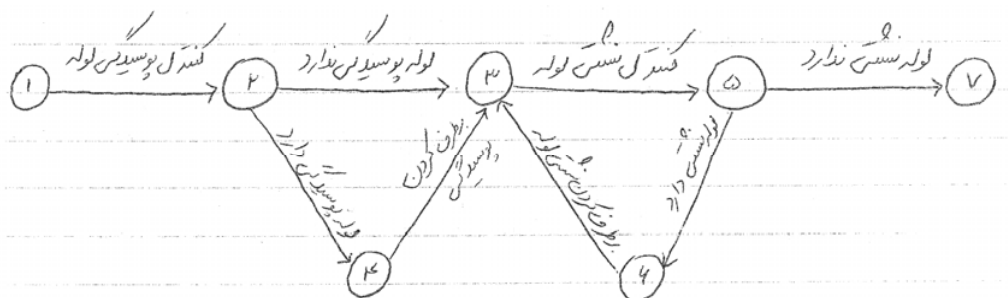 کنترل پوسیدگی لوله
لوله پوسیدگی ندارد
کنترل نشتی لوله
لوله نشتی ندارد
۱
۲
۳
۵
۷
لوله پوسیدگی دارد
برطرف کردن
پوسیدگی
برطرف کردن نشتی لوله
لوله نشتی دارد
۴
۶